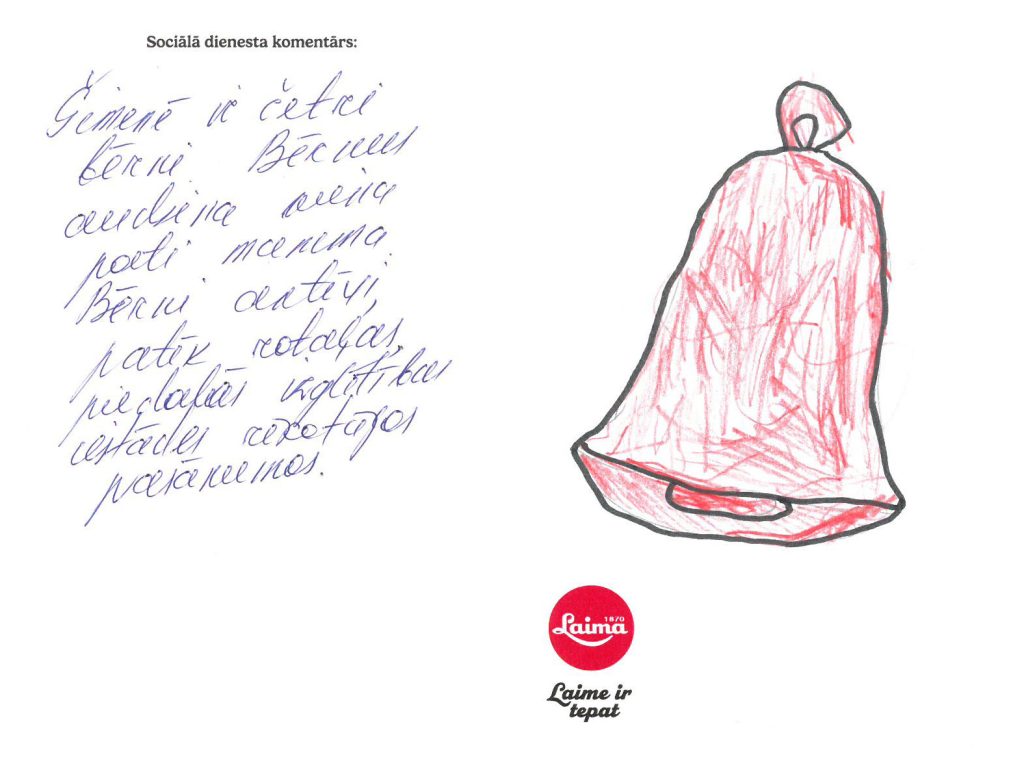 Sociālā dienesta komentārs:
Ģimenē ir četri
bērni. Bērnus
audzina viena
pati mamma.
Bērni aktīvi,
patīk rotaļas,
piedalās izglītības
iestādes rīkotajos
pasākumos.
Laima
1870
Laime ir
tepat